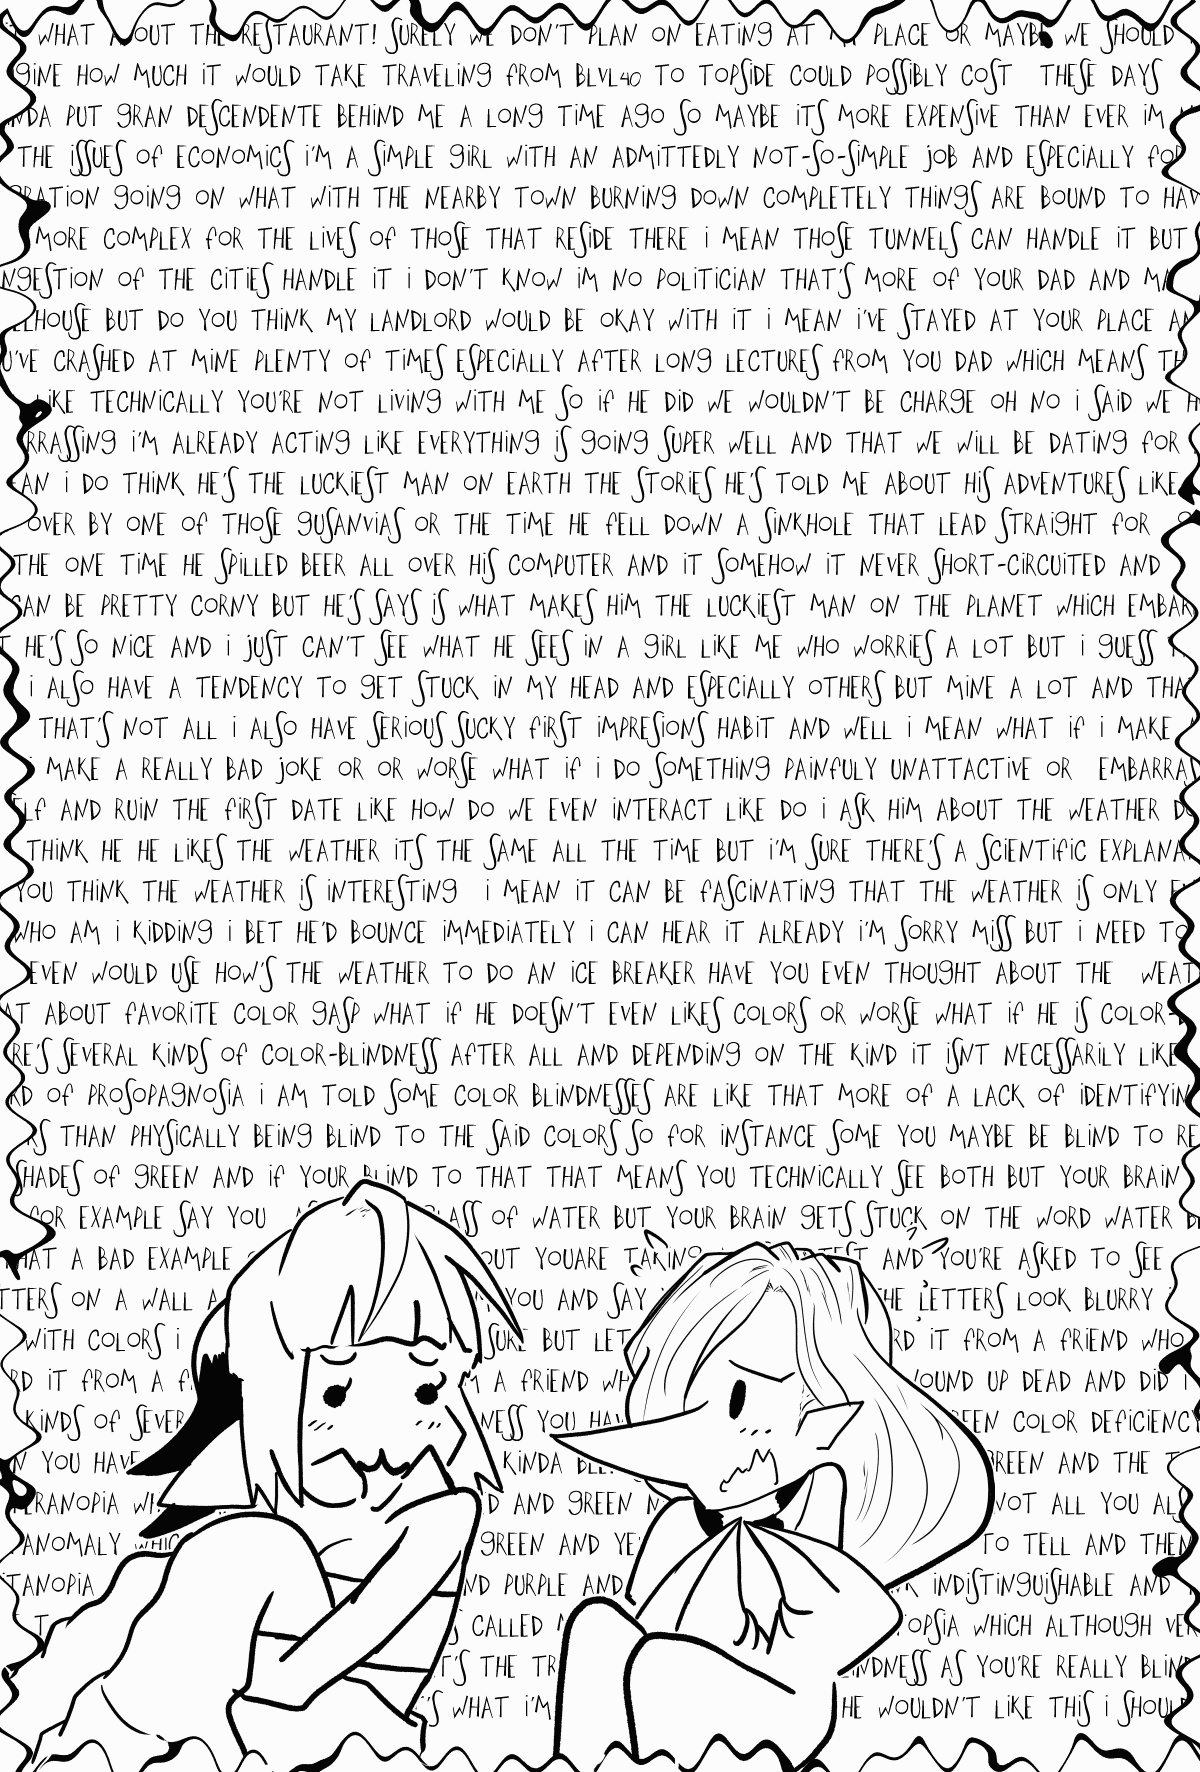 WHAT ABOUT THE RESTAURANT! SURELY WE DON'T PLAN ON EATING AT MY PLACE OR MAYBE WE SHOULD
GINE HOW MUCH iT WOULD TAKE TRAVELING fROM BLVL40 TO TOPSIDE COULD POSSIBLY COST THESE DAYS
NDA PUT GRAN DESCENDENTE BEHIND ME A LONG TIME AGO SO MAYBE ITS MORE EXPENSIVE THAN EVER IM
THE ISSUES Of ECONOMICS I'M A SIMPLE GIRL WITH AN ADMITTEDLY NOT-SO-SIMPLE JOB AND ESPECIALLY fOR
RATION GOING ON WHAT WITH THE NEARBY TOWN BURNING DOWN COMPLETELY THINGS ARE BOUND TO HAV
MORE COMPLEX fOR THE LIVES Of THOSE THAT RESIDE THERE I MEAN THOSE TUNNELS CAN HANDLE IT BUT
NGESTION Of THE CITIES HANDLE IT I DON'T KNOW IM NO POLITICIAN THAT'S MORE Of YOUR DAD AND MA
ELHOUSE BUT DO YOU THINK MY LANDLORD WOULD BE OKAY WITH IT I MEAN I'VE STAYED AT YOUR PLACE AN
U'VE CRASHED AT MINE PLENTY Of TIMES ESPECIALLY AfTER LONG LECTURES fROM YOU DAD WHICH MEANS TH
LIKE TECHNICALLY YOU'RE NOT LIVING WITH ME SO If HE DID WE WOULDN'T BE CHARGE OH NO I SAID WE H
RRASSING I'M ALREADY ACTING LIKE EVERYTHING IS GOING SUPER WELL AND THAT WE WILL BE DATING fOR
EAN I DO THINK HE'S THE LUCKIEST MAN ON EARTH THE STORIES HE'S TOLD ME ABOUT HIS ADVENTURES LIKE
OVER BY ONE OF THOSE GUSANVIAS OR THE TIME HE fELL DOWN A SINKHOLE THAT LEAD STRAIGHT fOR
THE ONE TIME HE SPILLED BEER ALL OVER HIS COMPUTER AND IT SOMEHOW IT NEVER SHORT-CIRCUITED AND
CAN BE PRETTY CORNY BUT HE'S SAYS IS WHAT MAKES HIM THE LUCKIEST MAN ON THE PLANET WHICH EMBAR
T HE'S SO NICE AND I JUST CAN'T SEE WHAT HE SEES IN A GIRL LIKE ME WHO WORRIES A LOT BUT I GUESS
I ALSO HAVE A TENDENCY TO GET STUCK IN MY HEAD AND ESPECIALLY OTHERS BUT MINE A LOT AND THA
THAT'S NOT ALL I ALSO HAVE SERIOUS SUCKY fIRST IMPRESIONS HABIT AND WELL I MEAN WHAT If I MAKE
I MAKE A REALLY BAD JOKE OR OR WORSE WHAT If I DO SOMETHING PAINfULY UNATTACTIVE OR EMBARRA
ELf AND RUIN THE fIRST DATE LIKE HOW DO WE EVEN INTERACT LIKE DO I ASK HIM ABOUT THE WEATHER D
THINK HE HE LIKES THE WEATHER ITS THE SAME ALL THE TIME BUT I'M SURE THERE'S A SCIENTIfIC EXPLANA
YOU THINK THE WEATHER IS INTERESTING I MEAN IT CAN BE fASCINATING THAT THE WEATHER IS ONLY
WHO AM I KIDDING I BET HE'D BOUNCE IMMEDIATELY I CAN HEAR IT ALREADY I'M SORRY MISS BUT I NEED TO
EVEN WOULD USE HOW'S THE WEATHER TO DO AN ICE BREAKER HAVE YOU EVEN THOUGHT ABOUT THE WEAT
AT ABOUT fAVORITE COLOR GASP WHAT If HE DOESN'T EVEN LIKES COLORS OR WORSE WHAT If HE IS COLOR-
RE'S SEVERAL KINDS Of COLOR-BLINDNESS AfTER ALL AND DEPENDING ON THE KIND IT ISNT NECESSARILY LIKE
RD Of PROSOPAGNOSIA I AM TOLD SOME COLOR BLINDNESSES ARE LIKE THAT MORE OF A LACK OF IDENTIfYIN
RS THAN PHYSICALLY BEING BLIND TO THE SAID COLORS SO fOR INSTANCE SOME YOU MAYBE BE BLIND TO RE
SHADES Of GREEN AND If YOUR BLIND TO THAT THAT MEANS YOU TECHNICALLY SEE BOTH BUT YOUR BRAIN
fOR EXAMPLE SAY YOU GLASS OF WATER BUT YOUR BRAIN GETS STUCK ON THE WORD WATER
THAT A BAD EXAMPLE OUT YOUARE TAKING TEST AND YOU'RE ASKED TO SEE
TTERS ON A WALL A YOU AND SAY THE LETTERS LOOK BLURRY
WITH COLORS I SURE BUT LET RD IT FROM A fRIEND WHO
RD IT fROM A fR M A fRIEND WH WOUND UP DEAD AND DID I
KINDS Of SEVER NESS YOU HAV EEN COLOR DEfICIENCY
N YOU HAVE KINDA GREEN AND THE
ERANOPIA WH D AND GREEN N NOT ALL YOU AL
ANOMALY WHIC GREEN AND YE TO TELL AND THEN
TANOPIA ND PURPLE AND INDISTINGUISHABLE AND
T S CALLED TOPSIA WHICH ALTHOUGH VER
T'S THE TR LINDNESS AS YOU'RE REALLY BLIN
'S WHAT I'M HE WOULDN'T LIKE THIS I SHOUL